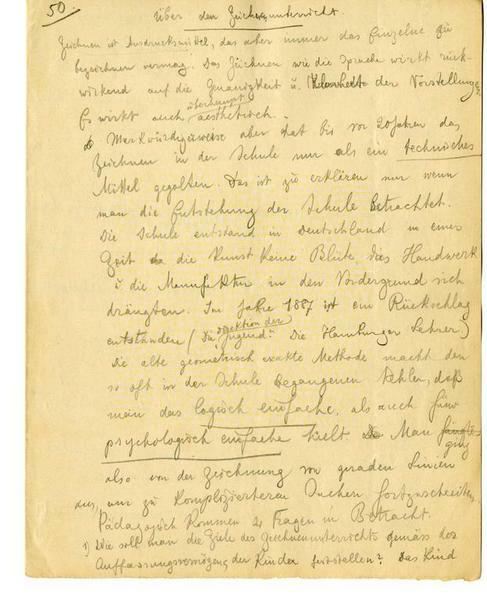 50.
Über den Zeichenunterricht.
Zeichnen ist Ausdrucksmittel, das aber immer das Einzelne zu
bezeichnen vermag. Das Zeichnen wie die Sprache wirkt rück-
wirkend auf die Genauigkeit u. Klarheit der Vorstellung.
Es wirkt auch überhaupt aesthetisch.
Merkwürdigerweise aber hat bis vor 20 Jahren das
Zeichnen in der Schule nur als ein technisches
Mittel gegolten. Das ist zu erklären nur wenn
man die Entstehung der Schule betrachtet.
Die Schule entstand in Deutschland in einer
Zeit da die Kunst keine Blüte, das Handwerk
u die Manufaktur in den Vordergrund sich
drängten. Im Jahre 1887 ist ein Rückschlag
entstanden (Die direktion der Jugend." Die Hamburger Lehrer)
Die alte geometrisch exakte Methode macht den
so oft in der Schule begangenen Fehler, daß
man das logisch einfache, als auch für
psychologisch einfache hielt. Man ging
also von der Zeichnung von geraden Linien
aus, um zu komplizierteren Sachen fortzuschreiten.
Pädagogisch kommen 2 Fragen in Betracht.
1) Wie soll man die Ziele des Zeichenunterrichts gemäss des
Auffassungsvermögens der Kinder feststellen? Das Kind